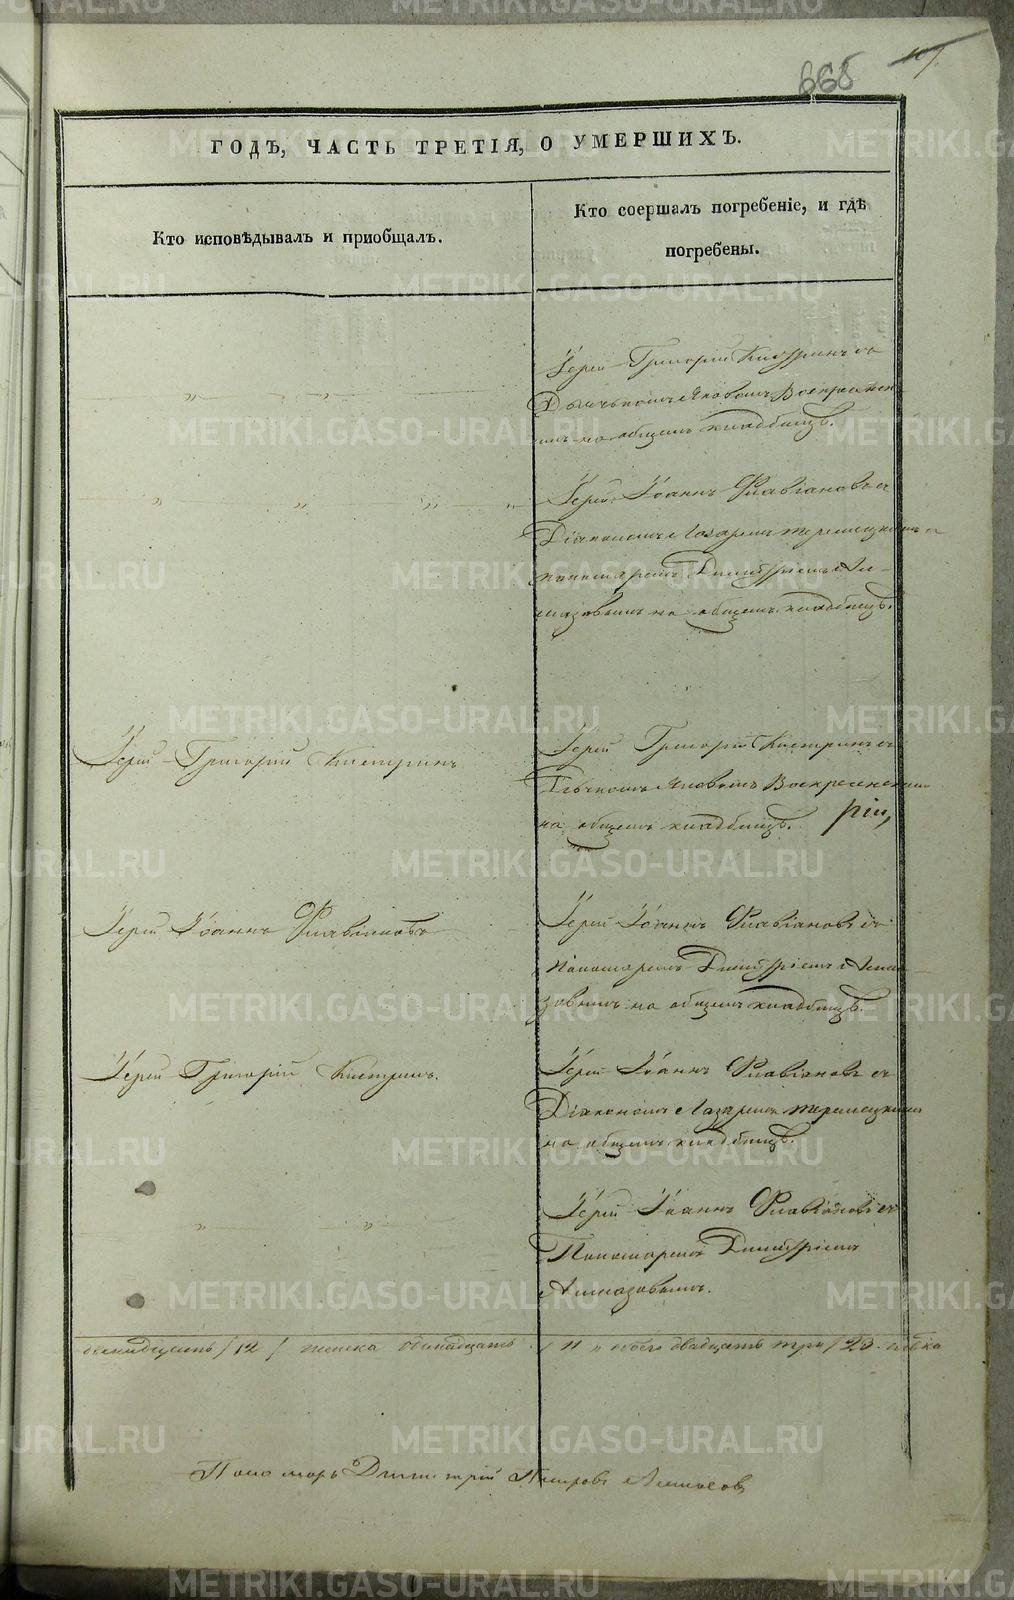 107
668
ГОДЪ, ЧАСТЬ ТРЕТІЯ, О УМЕРШИХЪ.
Кто исповѣдывалъ и приобщалъ.
Кто соершалъ погребеніе, и гдѣ
погребены.
„ „ „ „
Іерей Григорій Кистринъ съ
Дьячькомъ Яковомъ Воскресенс
имъ на общемъ кладбищѣ.
„ „ „ „
Іерей Іоаннъ Флавіановъ съ
Діакономъ Лазаремъ и
пономаремъ Димитріемъ Ал-
мазовымъ на общемъ кладбищѣ.
Іерей Григорій Кистринъ
Іерей Григорій Кистринъ съ
Дьячкомъ Яковомъ Воскресенским
на общемъ кладбищѣ.
Іерей Іоаннъ Флавіановъ
Іерей Іоаннъ Флавіановъ съ
Пономаремъ Димитріемъ Алма-
зовымъ на общемъ кладбищѣ.
Іерей Григорій Кистринъ.
Іерей Іоаннъ Флавіановъ съ
Діакономъ Лазаремъ
на общемъ кладбищѣ.
„ „
Іерей Іоаннъ Флавіановъ съ
Пономаремъ Димитріемъ
Алмазовымъ.
/12/ женска одинадцать /11/ обоего двадцать три /23/
Пономарь Димитрій Петровъ Алмазовъ